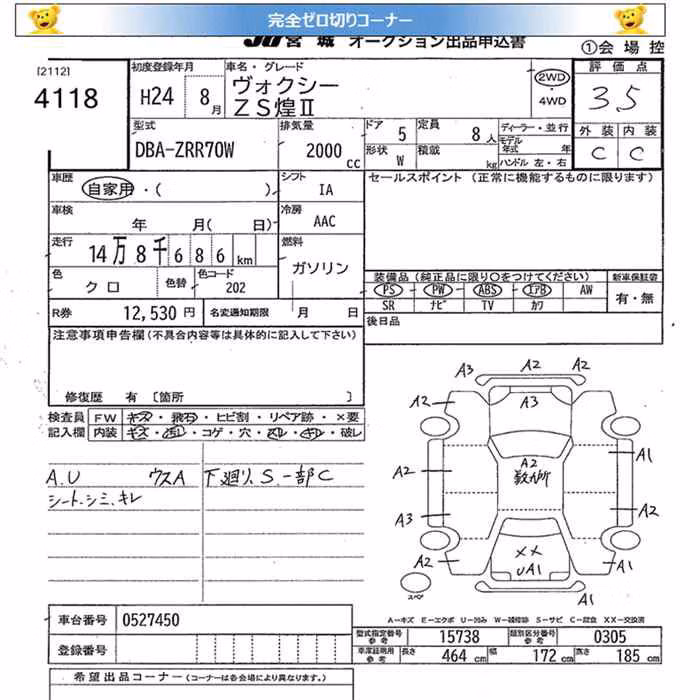 完全ゼロ切りコーナー
JU宮城 オークション出品申込書
①会場控
[2112]
4118
初度登録年月
H24 8月
車名・グレード
ヴォクシー
ZS煌II
2WD
・
4WD
評価点
3.5
外装 内装
C C
型式
DBA-ZRR70W
排気量
2000cc
ドア 5
定員 8人
形状 W
積載 kg
ディーラー・並行
モデル年式 年
ハンドル 左・右
車歴
自家用・( )
シフト
IA
セールスポイント (正常に機能するものに限ります)
車検
年 月( 日)
冷房
AAC
走行
14万8千686km
燃料
ガソリン
色
クロ
色替
色コード
202
装備品 (純正品に限り○をつけてください)
PS PW ABS エアB AW
SR ナビ TV カワ
新車保証書
有・無
R券 12,530円
名変通知期限 月 日
後日品
注意事項申告欄 (不具合内容等は具体的に記入して下さい)
修復歴 有 [箇所 ]
検査員
記入欄
FW キズ・飛石・ヒビ割・リペア跡・×要
内装 キズ・汚れ・コゲ・穴・スレ・キレ・破レ
A.U ウスA
シート.シミ.キレ
下廻り.S.一部C
A3 A2 A2
A2 A3 A2
A2 A2 A1
数ヵ所
A3 A2
×× UA1
A2 A1
A2 A1
スペア
A－キズ E－エクボ U－凹み W－補修跡 S－サビ C－腐食 XX－交換済
車台番号 0527450
登録番号
型式指定番号 参考 15738
類別区分番号 参考 0305
車庫証明用 参考
長さ 464cm
幅 172cm
高さ 185cm
希望出品コーナー (各会場により異なります。)